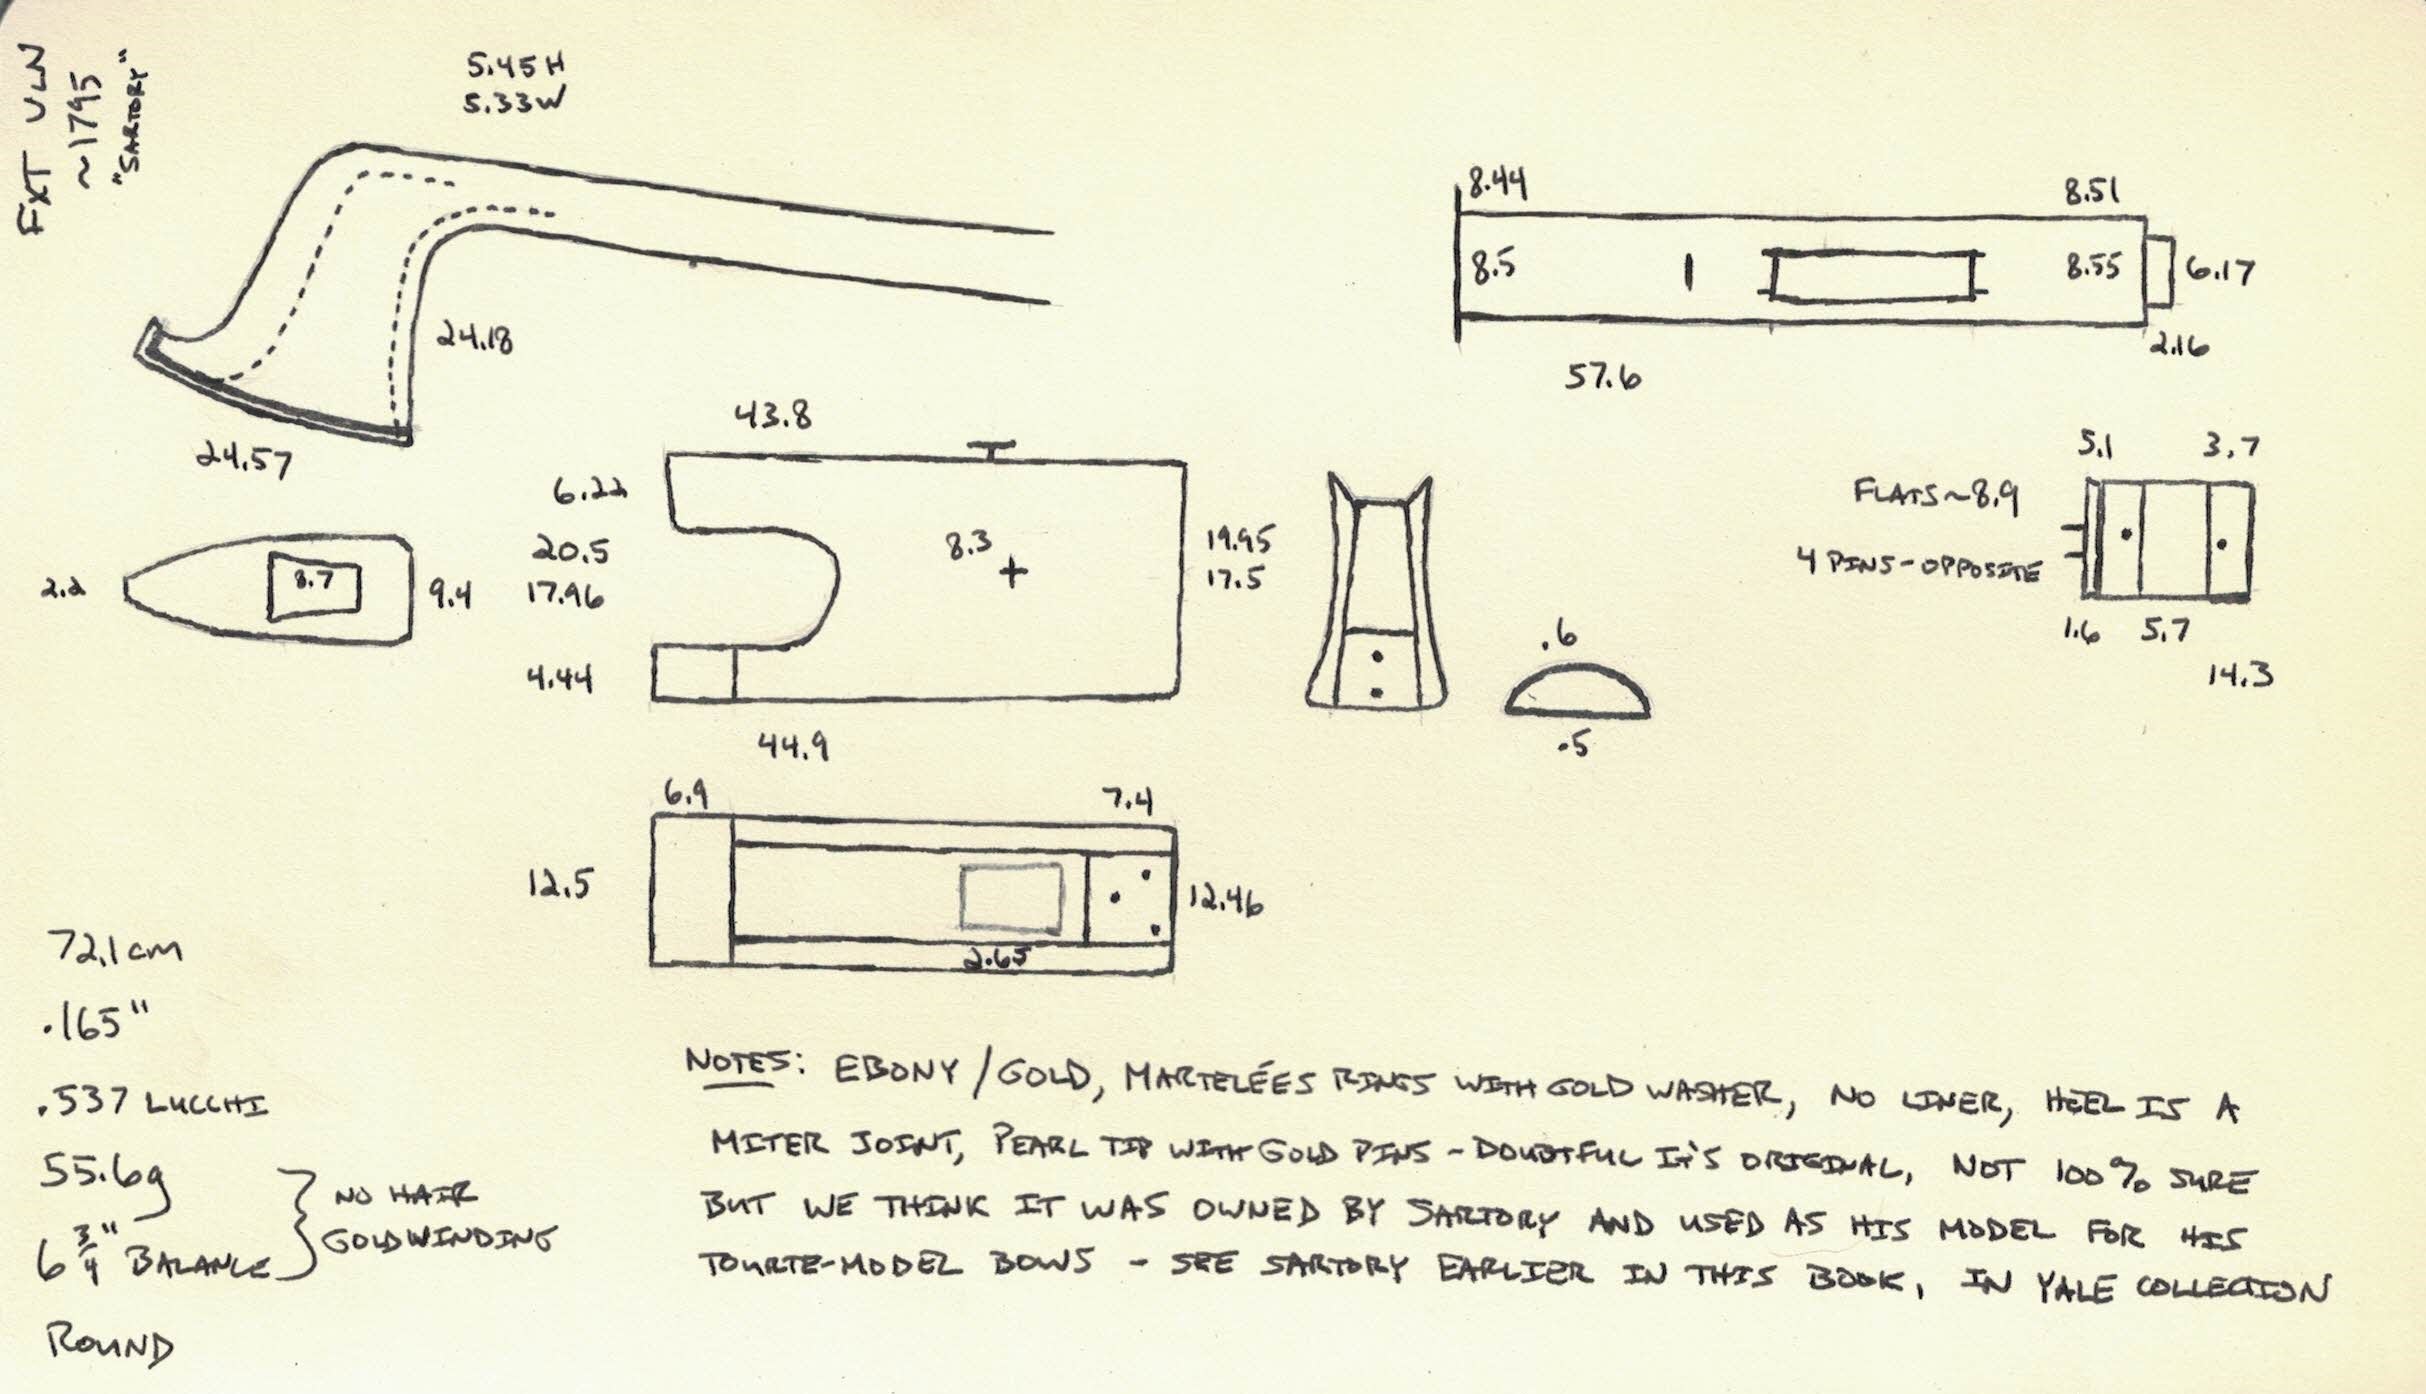 FXT VLN
~1795
"SARTORY"
5.45 H
5.33 W
24.18
24.57
8.44
8.51
8.5
8.55
6.17
2.16
57.6
43.8
6.22
20.5
17.96
4.44
8.3
19.95
17.5
44.9
2.2
8.7
9.4
.6
.5
5.1
3.7
FLATS ~ 8.9
4 PINS - OPPOSITE
1.6
5.7
14.3
6.9
7.4
12.5
12.46
2.65
72.1 cm
.165"
.537 LUCCHI
55.6g
6 3/4" BALANCE
NO HAIR
GOLD WINDING
ROUND
NOTES: EBONY / GOLD, MARTELÉES RINGS WITH GOLD WASHER, NO LINER, HEEL IS A
MITER JOINT, PEARL TIP WITH GOLD PINS - DOUBTFUL IT'S ORIGINAL, NOT 100% SURE
BUT WE THINK IT WAS OWNED BY SARTORY AND USED AS HIS MODEL FOR HIS
TOURTE-MODEL BOWS - SEE SARTORY EARLIER IN THIS BOOK, IN YALE COLLECTION